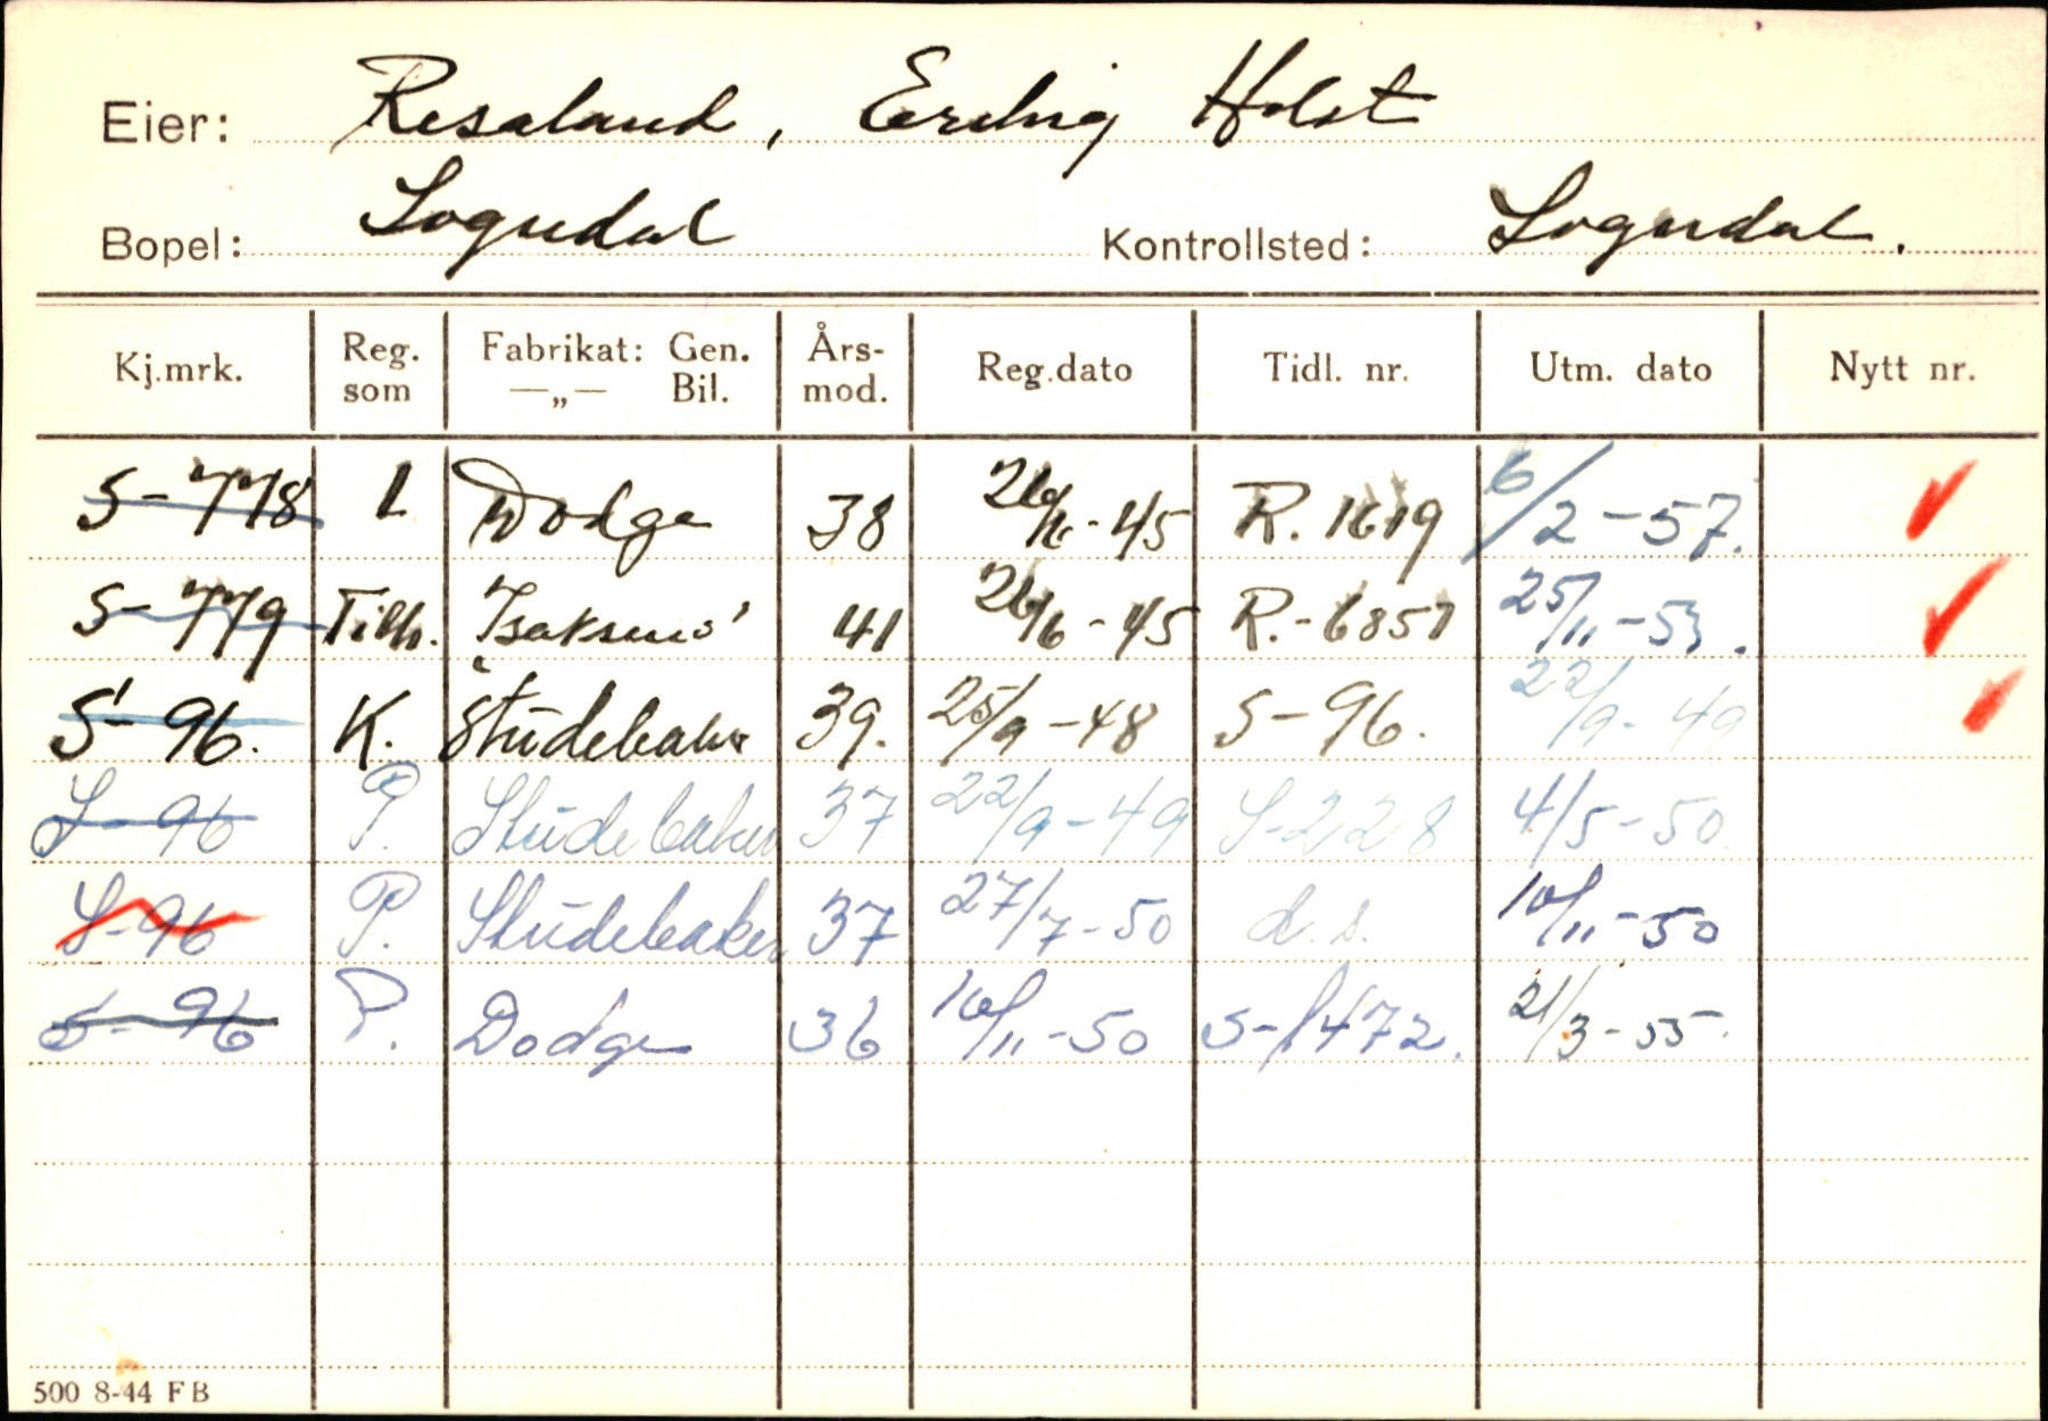 Eier: Resaland, Erling Holst
Bopel: Sogndal Kontrollsted: Sogndal.
Kj.mrk. Reg. som Fabrikat: Gen. —„— Bil. Års-mod. Reg.dato Tidl. nr. Utm. dato Nytt nr.
S-778 L Dodge 38 26/6-45 R. 1619 6/2-57.
S-779 Tilh. 41 26/6-45 R.-6851 25/11-53.
S-96. K. Studebaker 39. 25/9-48 S-96. 22/9-49
S-96 P. Studebaker 37 22/9-49 S-228 4/5-50
S-96 P. Studebaker 37 27/7-50 d.s. 10/11-50
S-96 P. Dodge 36 10/11-50 S-1472. 21/3-55.
500 8-44 FB